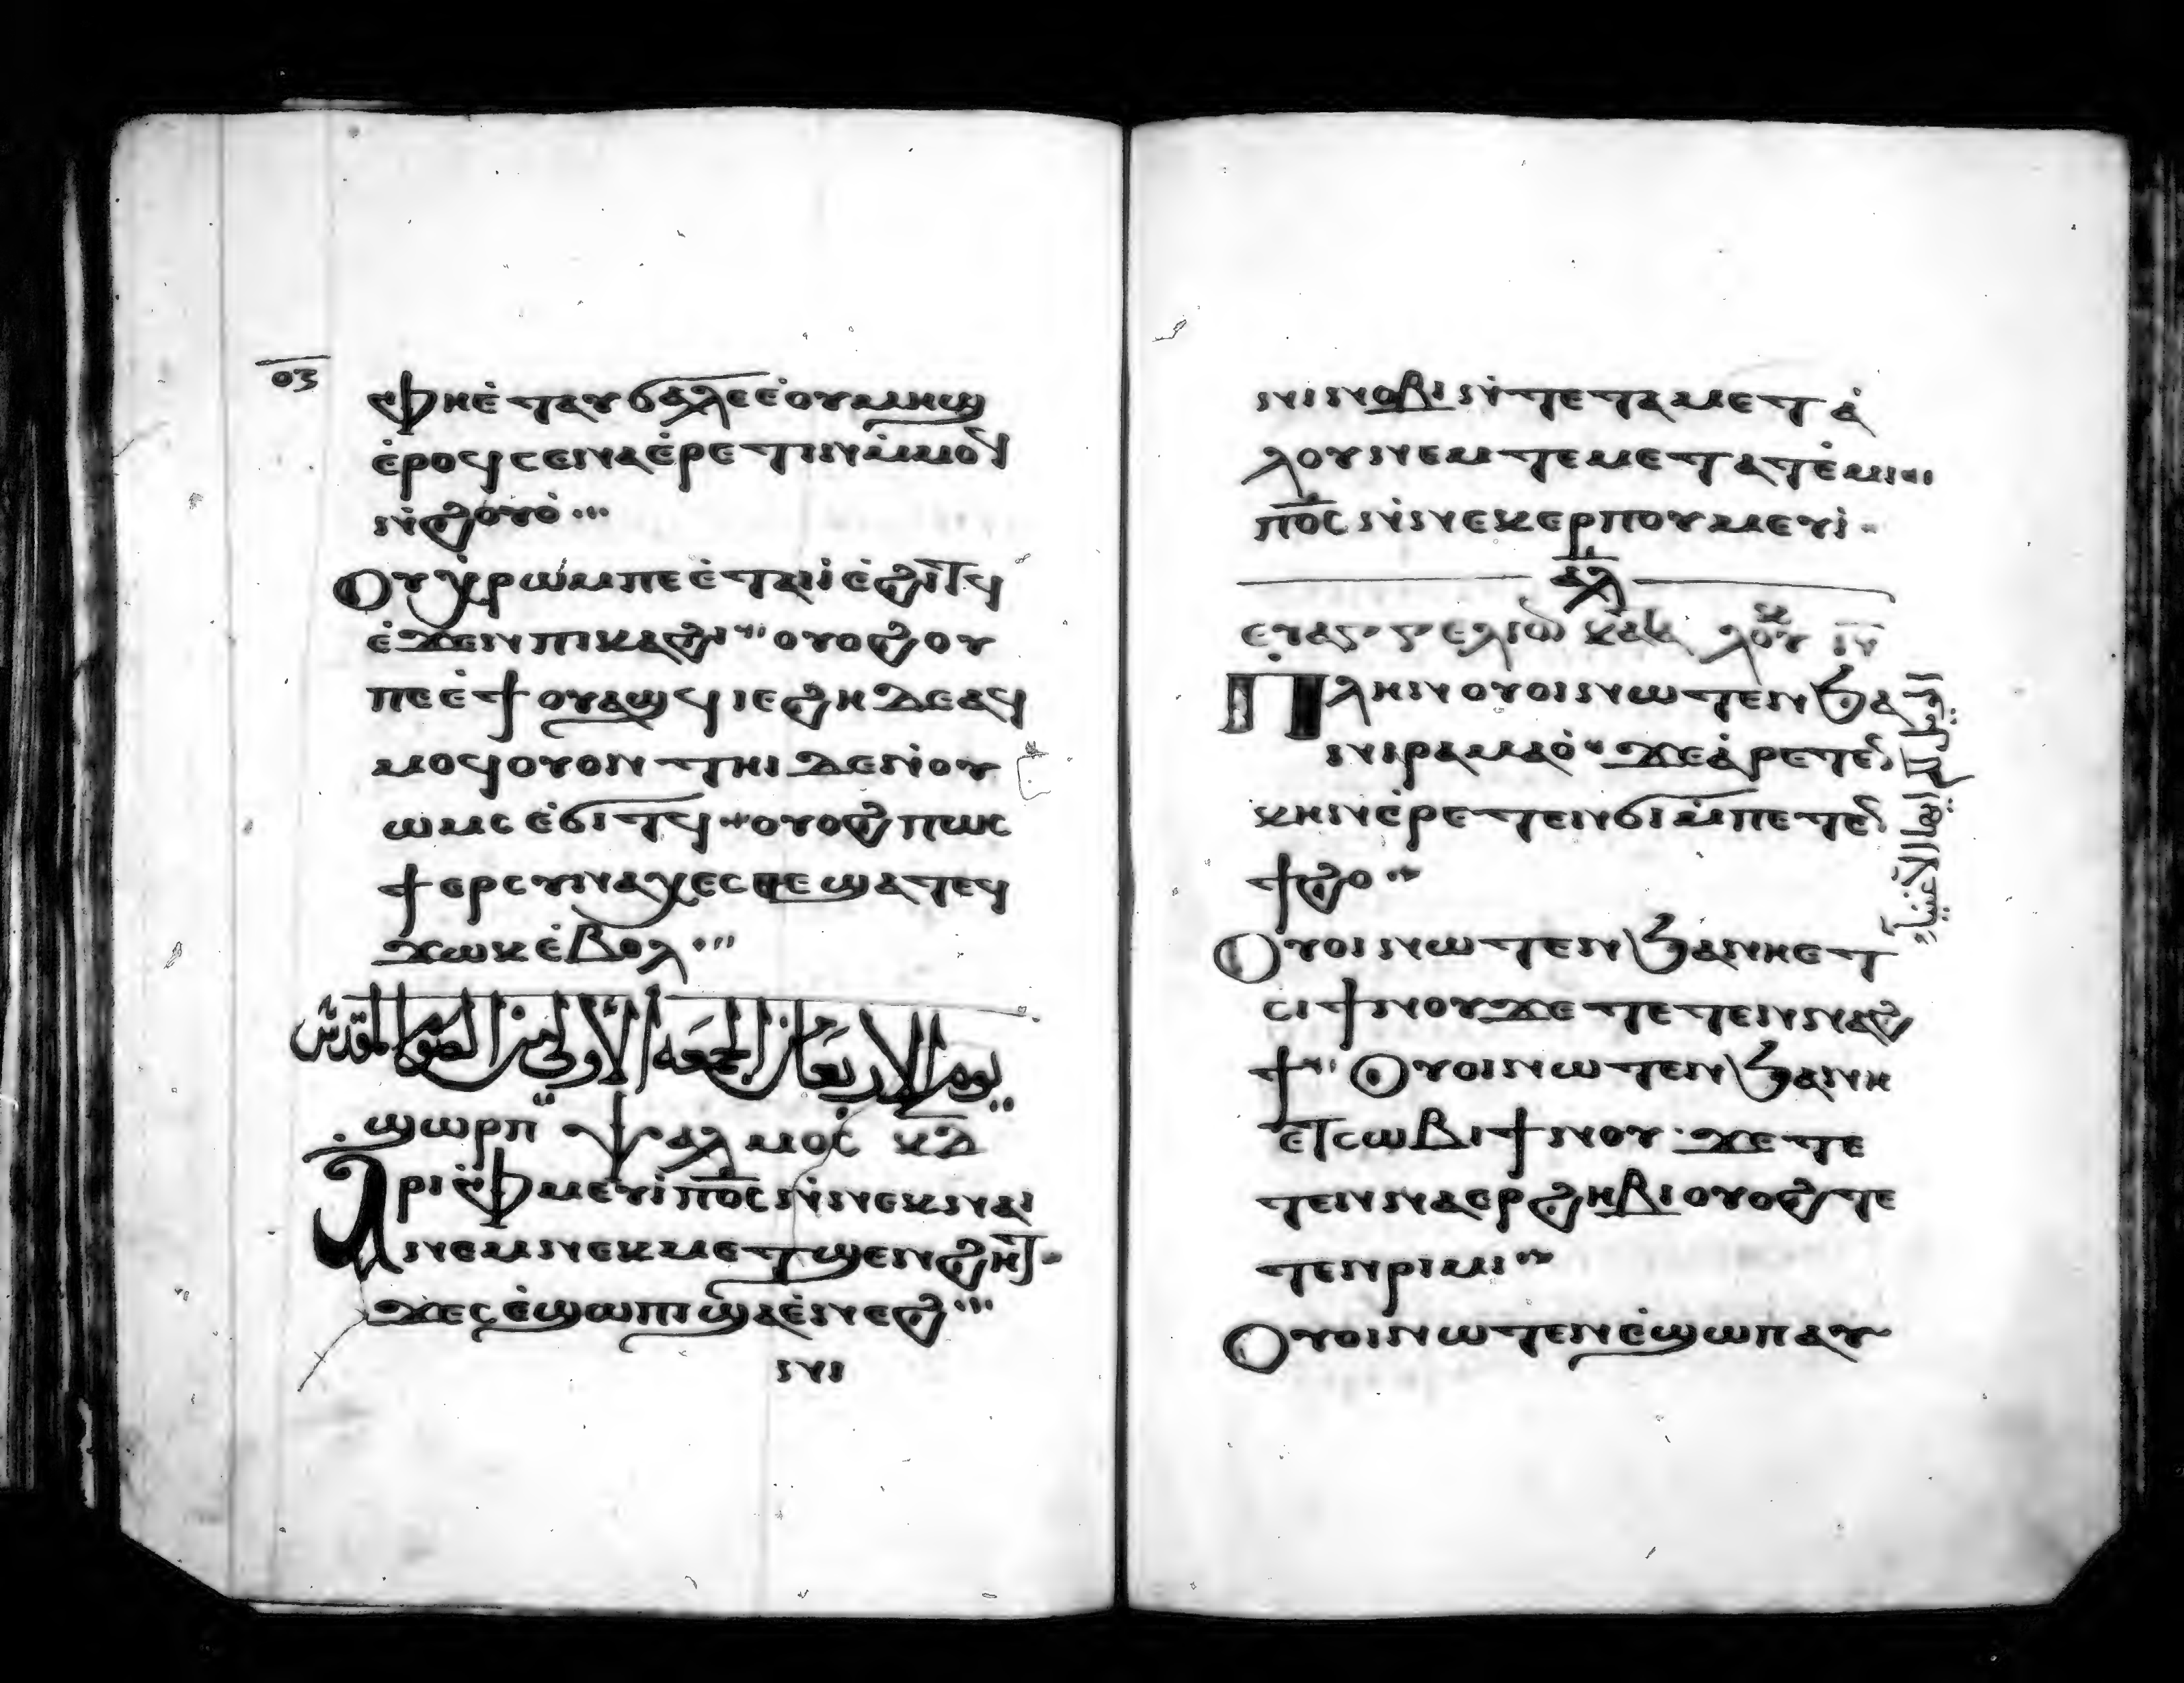 ⲟⲍ
ⲫⲏⲉ̀ⲧⲁⲩϭⲁⲗⲉⲉ̀ⲟⲩⲙⲏϣ
ⲉ̀ⲣⲟϥⲥⲉⲛⲁⲉ̀ⲣⲉⲧⲓⲛⲙ̀ⲙⲟϥ
ⲛ̀ϩⲟⲩⲟ̀
Ⲟⲩⲭ̀ⲣⲱⲙⲡⲉⲉ̀ⲧⲁⲓⲉ̀ϩⲓⲧϥ
ⲉ̀ϫⲉⲛⲡⲓⲕⲁϩⲓ ⲟⲩⲟϩⲟⲩ
ⲡⲉⲉ̀ϯⲟⲩⲁϣϥ ⲓⲉϩⲏⲇⲉⲁϥ
ⲙⲟϥⲟⲩⲟⲛ ⲧⲏⲓⲇⲉⲛ̀ⲟⲩ
ⲱⲙⲥ ⲉ̀ϭⲓⲧϥ ⲟⲩⲟϩⲡⲱⲥ
ϯⲉⲣⲥⲩⲛⲁⲭⲉⲥⲑⲉϣⲁⲧⲉϥ
ϫⲱⲕⲉ̀ⲃⲟⲗ
يوم الاربعا من الجمعه الاولى من الصوم المقدس
ϣⲱⲣⲡ ⲯⲁⲗⲙⲟⲥ ⲕⲇ
Ⲁⲣⲓⲫⲙⲉⲩⲓ̀ⲡⲟ̅ⲥ̅ⲛ̀ⲛⲉⲕⲛⲁⲓ
ⲛⲉⲙⲛⲉⲕⲙⲉⲧϣⲉⲛϩⲏⲧ
ϫⲉⲥⲉ̀ϣⲱⲡⲓϣⲁⲉ̀ⲛⲉϩ
ⲛⲓ
ⲛⲓⲛⲟⲃⲓⲛ̀ⲧⲉⲧⲁⲙⲉⲧⲁ̀
ⲗⲟⲩⲛⲉⲙⲧⲉⲙⲉⲧⲁⲧⲉ̀ⲙⲓ
ⲡⲟ̅ⲥ̅ⲛ̀ⲛⲉⲕⲉⲣⲡⲟⲩⲙⲉⲩⲓ̀
ⲁⲗ
ⲉⲩⲁⲅⲅⲉⲗⲓⲟ ⲕⲁⲧⲁ ⲗⲟⲩⲕ
Ⲡⲗⲏⲛⲟⲩⲟⲓⲛⲱⲧⲉⲛϧⲁ
ⲛⲓⲣⲁⲙⲁⲟ̀ ϫⲉⲁ̀ⲣⲉⲧⲉ̅
ⲕⲏⲛⲉ̀ⲣⲉⲧⲉⲛϭⲓⲙ̀ⲡⲉⲧⲉ̅
ϯϩⲟ
Ⲟⲩⲟⲓⲛⲱⲧⲉⲛϧⲁⲛⲏⲉⲧ
ⲥⲓϯⲛⲟⲩϫⲉⲧⲉⲧⲉⲛⲛⲁϩ
ϯ Ⲟⲩⲟⲓⲛⲱⲧⲉⲛϧⲁⲛⲏ
ⲉⲧⲥⲱⲃⲓϯⲛⲟⲩ ϫⲉⲧⲉ
ⲧⲉⲛⲛⲁⲉⲣϩⲏⲃⲓⲟⲩⲟϩⲧⲉ
ⲧⲉⲛⲣⲓⲙⲓ
Ⲟⲩⲟⲓⲛⲱⲧⲉⲛⲉ̀ϣⲱⲡⲁⲩ
ايها الاغنياء